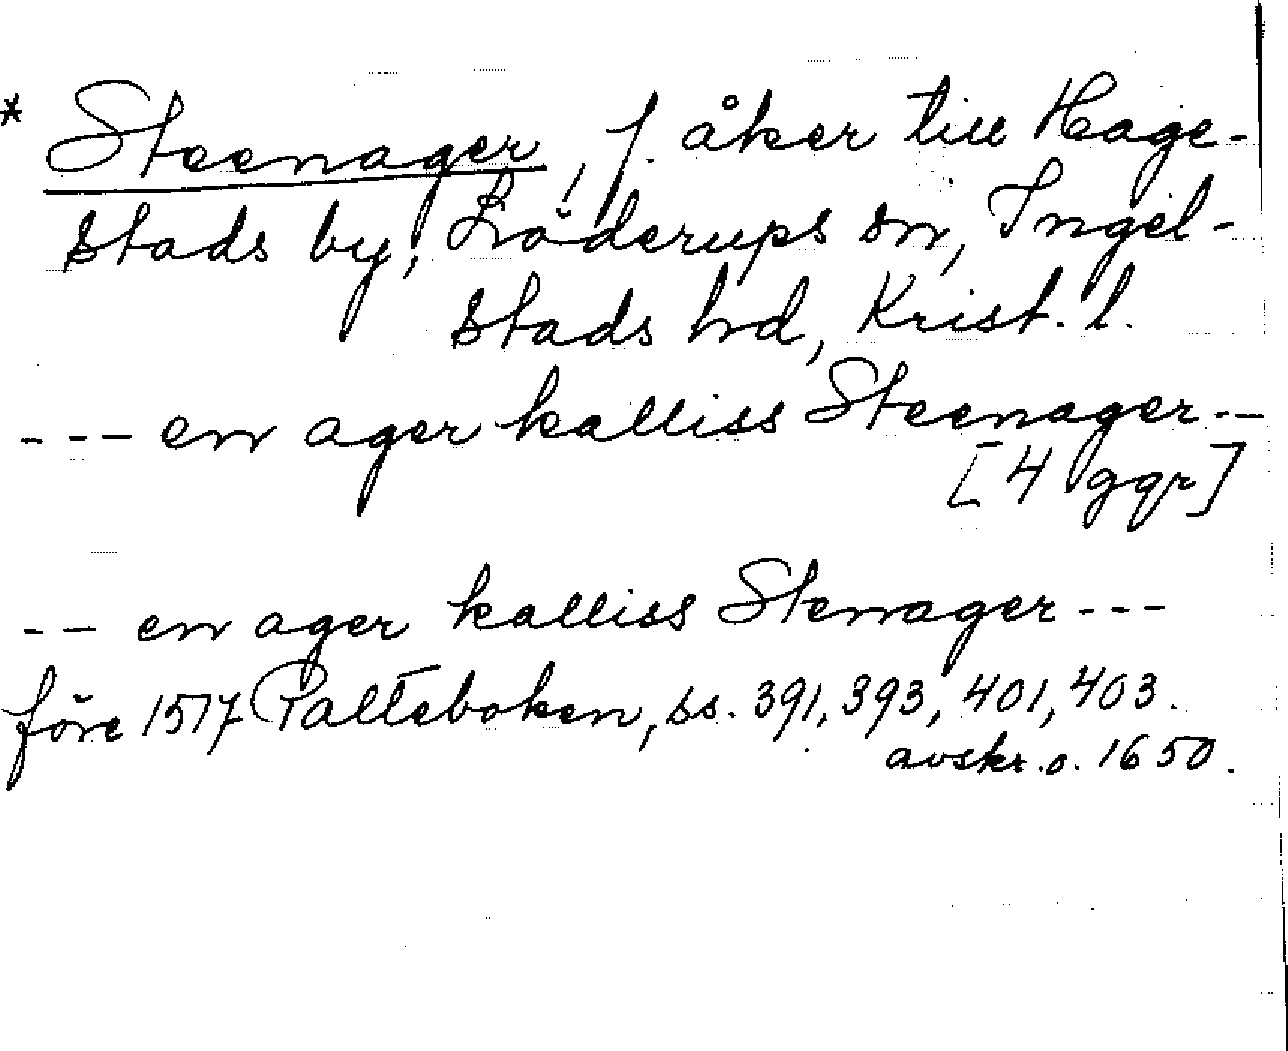 * Steenager, f. åker till Hage-
stads by, Löderups sn, Ingel-
stads hrd, Krist. l.
--- en ager kalliss Steenager --
[4 ggr]
-- en ager kalliss Stenager ---
före 1517 Palteboken, ss. 391, 393, 401, 403.
avskr. o. 1650.